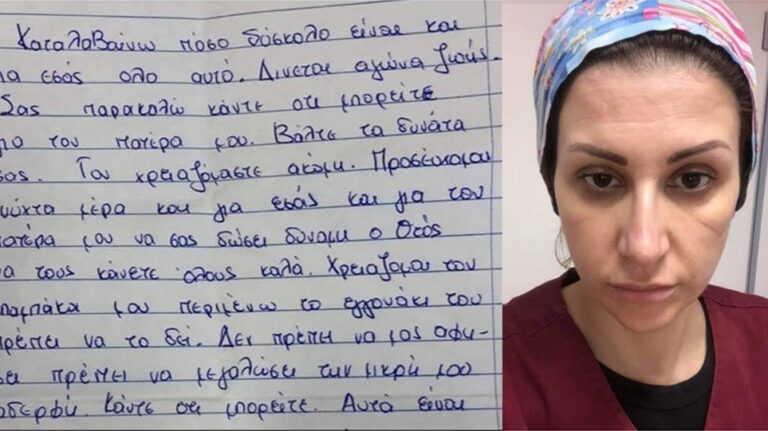 Καταλαβαίνω πόσο δύσκολο είναι και
ια εσάς ολο αυτό. Δινεται αγώνα ζωής.
Σας παρακαλώ κάντε οτι μπορείτε
ιο τον πατέρα μου. Βάλτε τα δυνάτα
σας. Τον χρειαζόμαστε ακόμη. Προσέυχομαι
νύχτα μέρα και για εσάς και για τον
ατέρα μου να σας δώσει δυναμη ο Θεός
α τους κάνετε όλους καλά. Χρειαζομαι τον
μπαμπάκα μου περιμένω το εγγονάκι του
ρέπει να το δεί. Δεν πρέπει να μας αφή-
ει πρέπει να μεγαλώσει την μικρή μου
δερφή. Κάντε οτι μπορείτε. Αυτά είναι